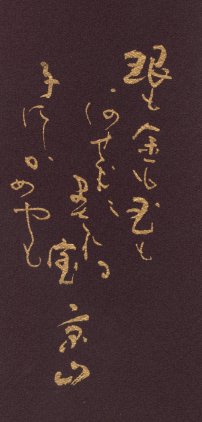 銀も金も玉も
何せむに
まされる
宝
子にしかめやも
京山